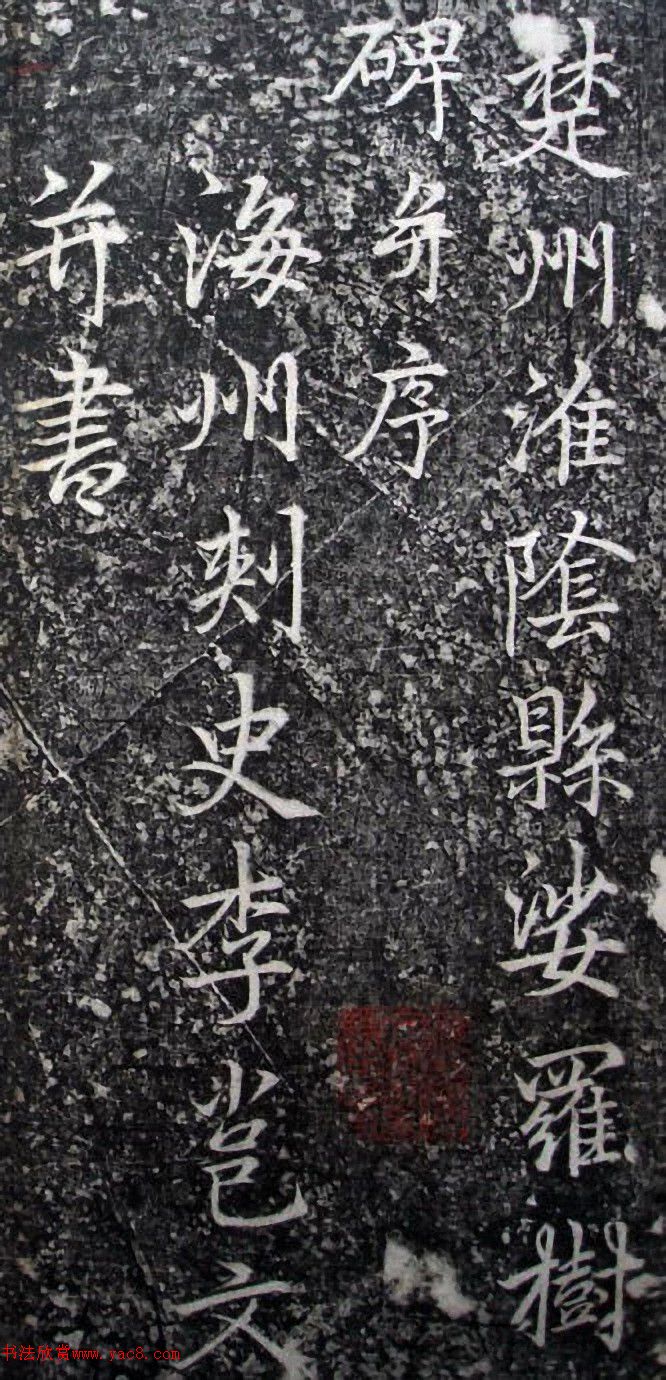 楚州淮陰縣娑羅樹
碑并序
海州刺史李邕文
并書
书法欣赏www.yac8.com